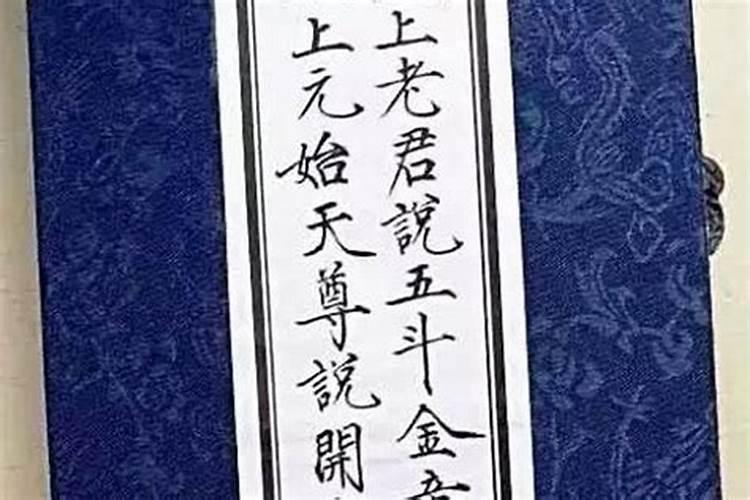 上老君說五斗金
上元始天尊說開